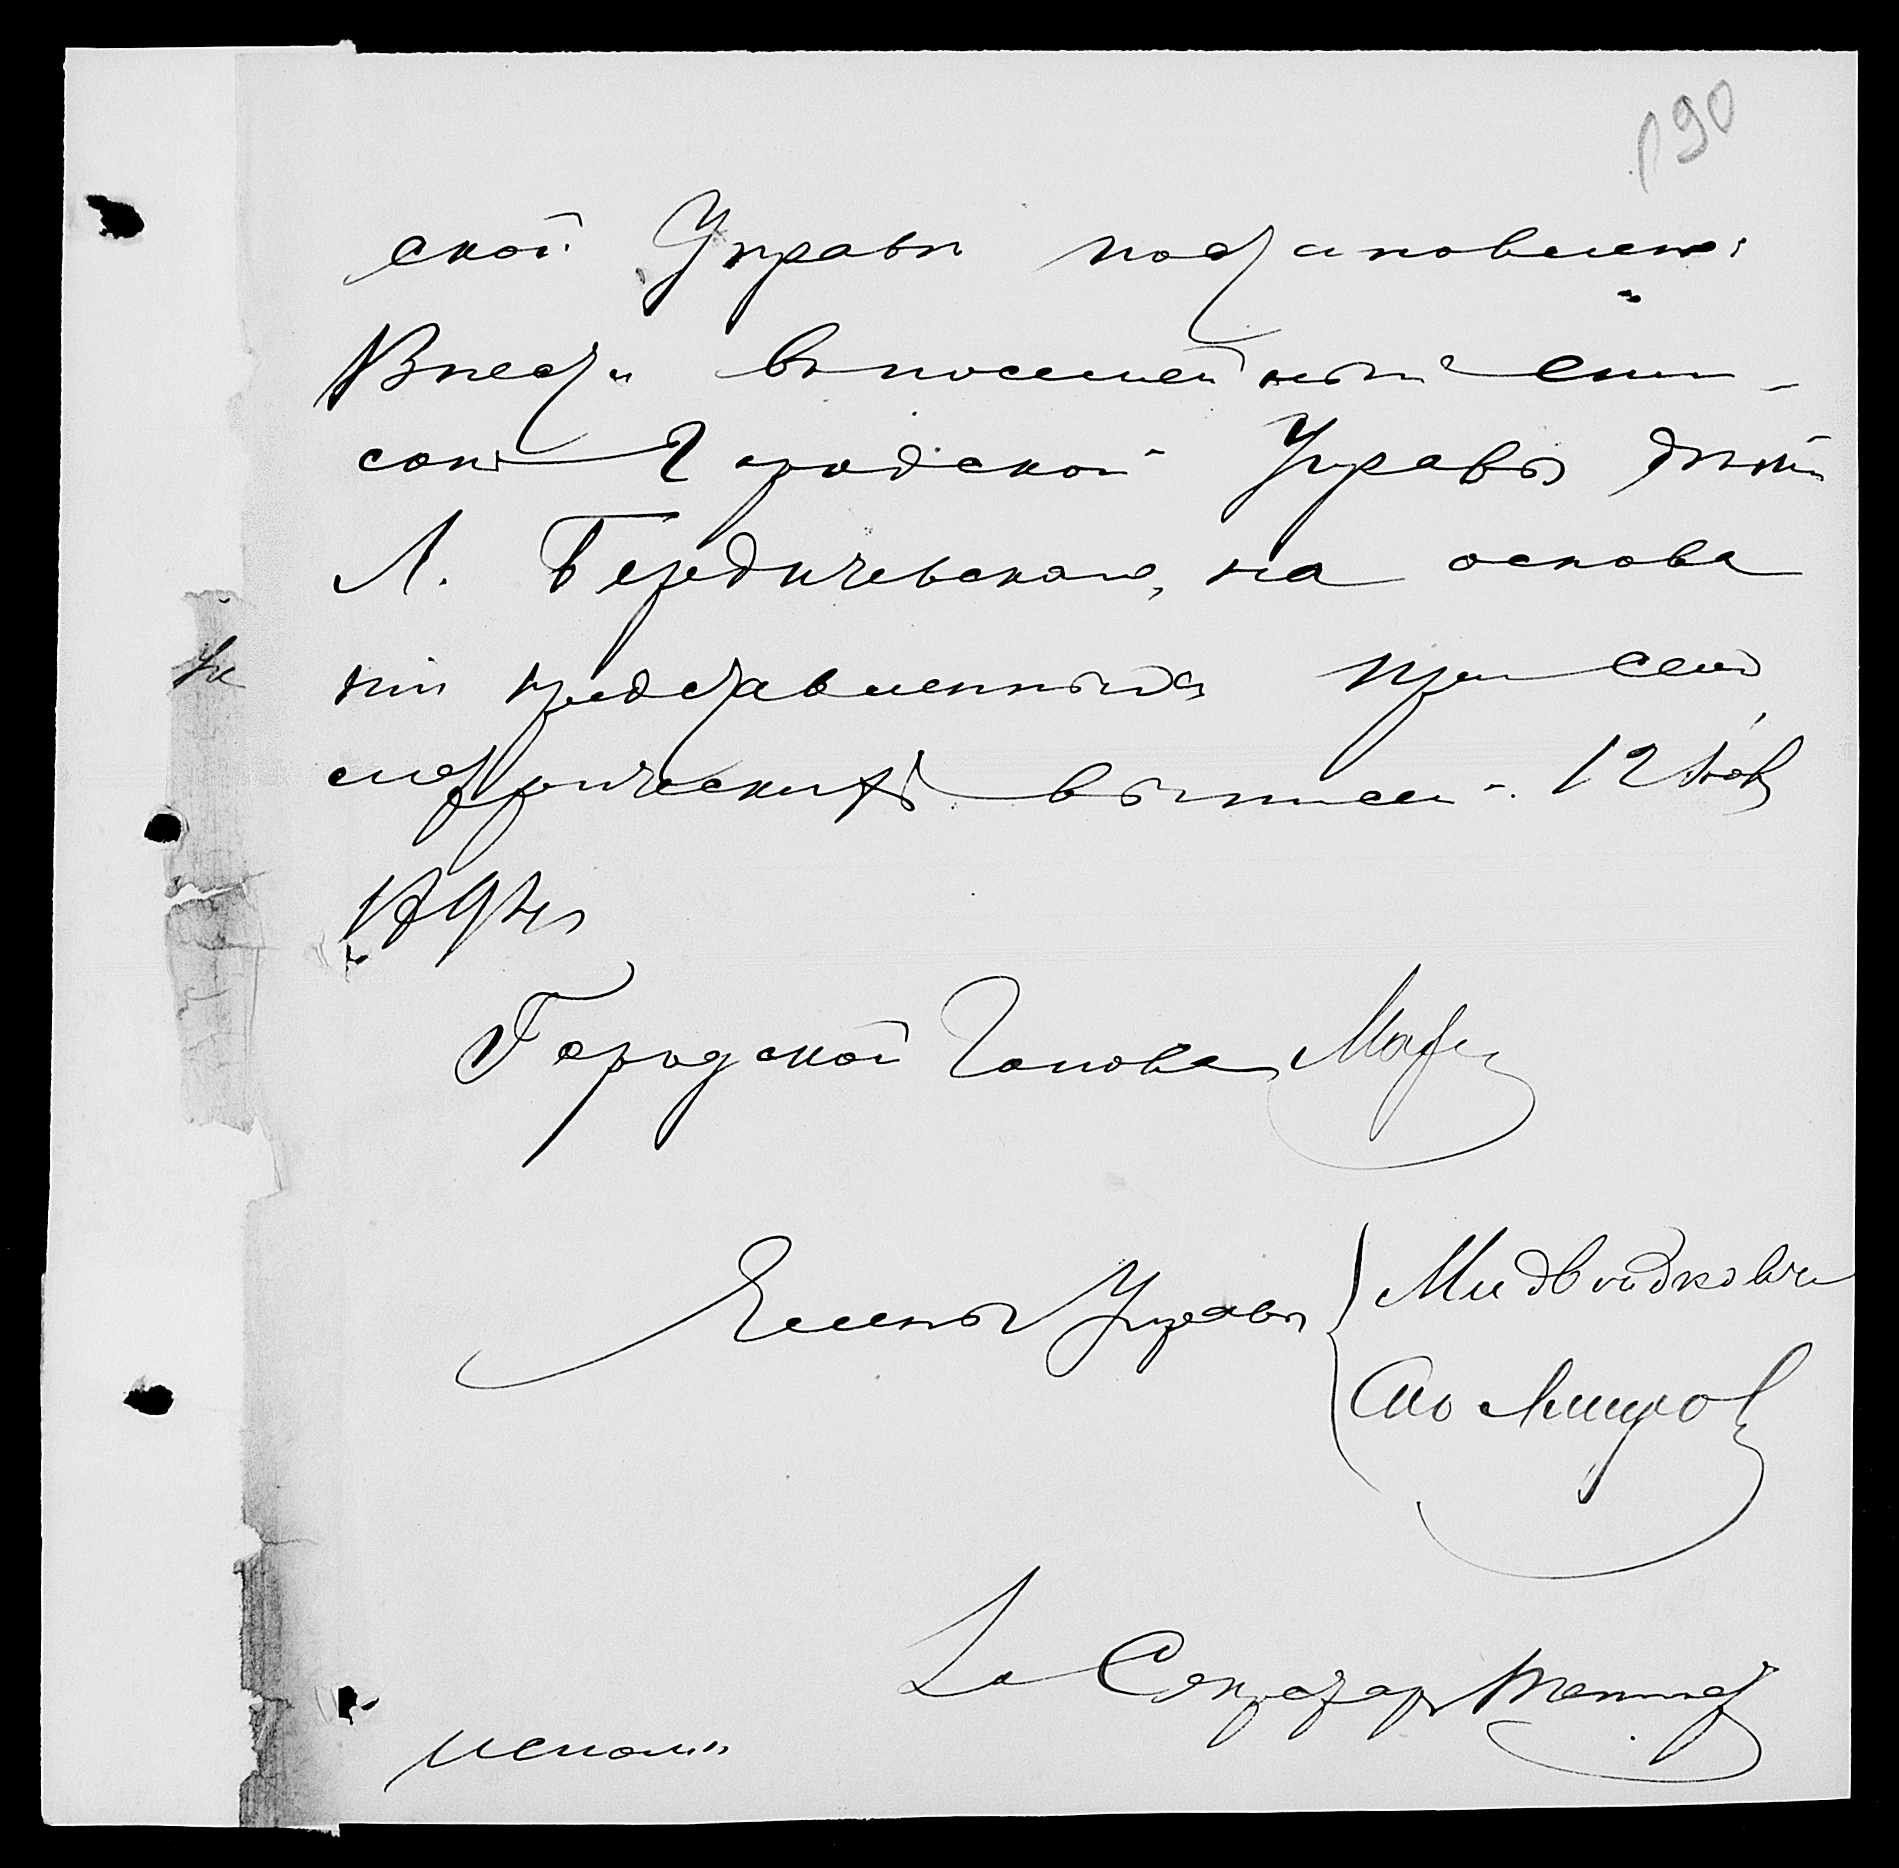 190
ской Управы постановлено:
Внести въ посемейный спи-
сокъ Городской Управы дѣтей
Л. Бердичевскаго, на основа
ніи представленныхъ при семъ
метрическихъ выписей. 12 Нояб
189
Городской Голова
Члены Управы
За Секретаря
исполн